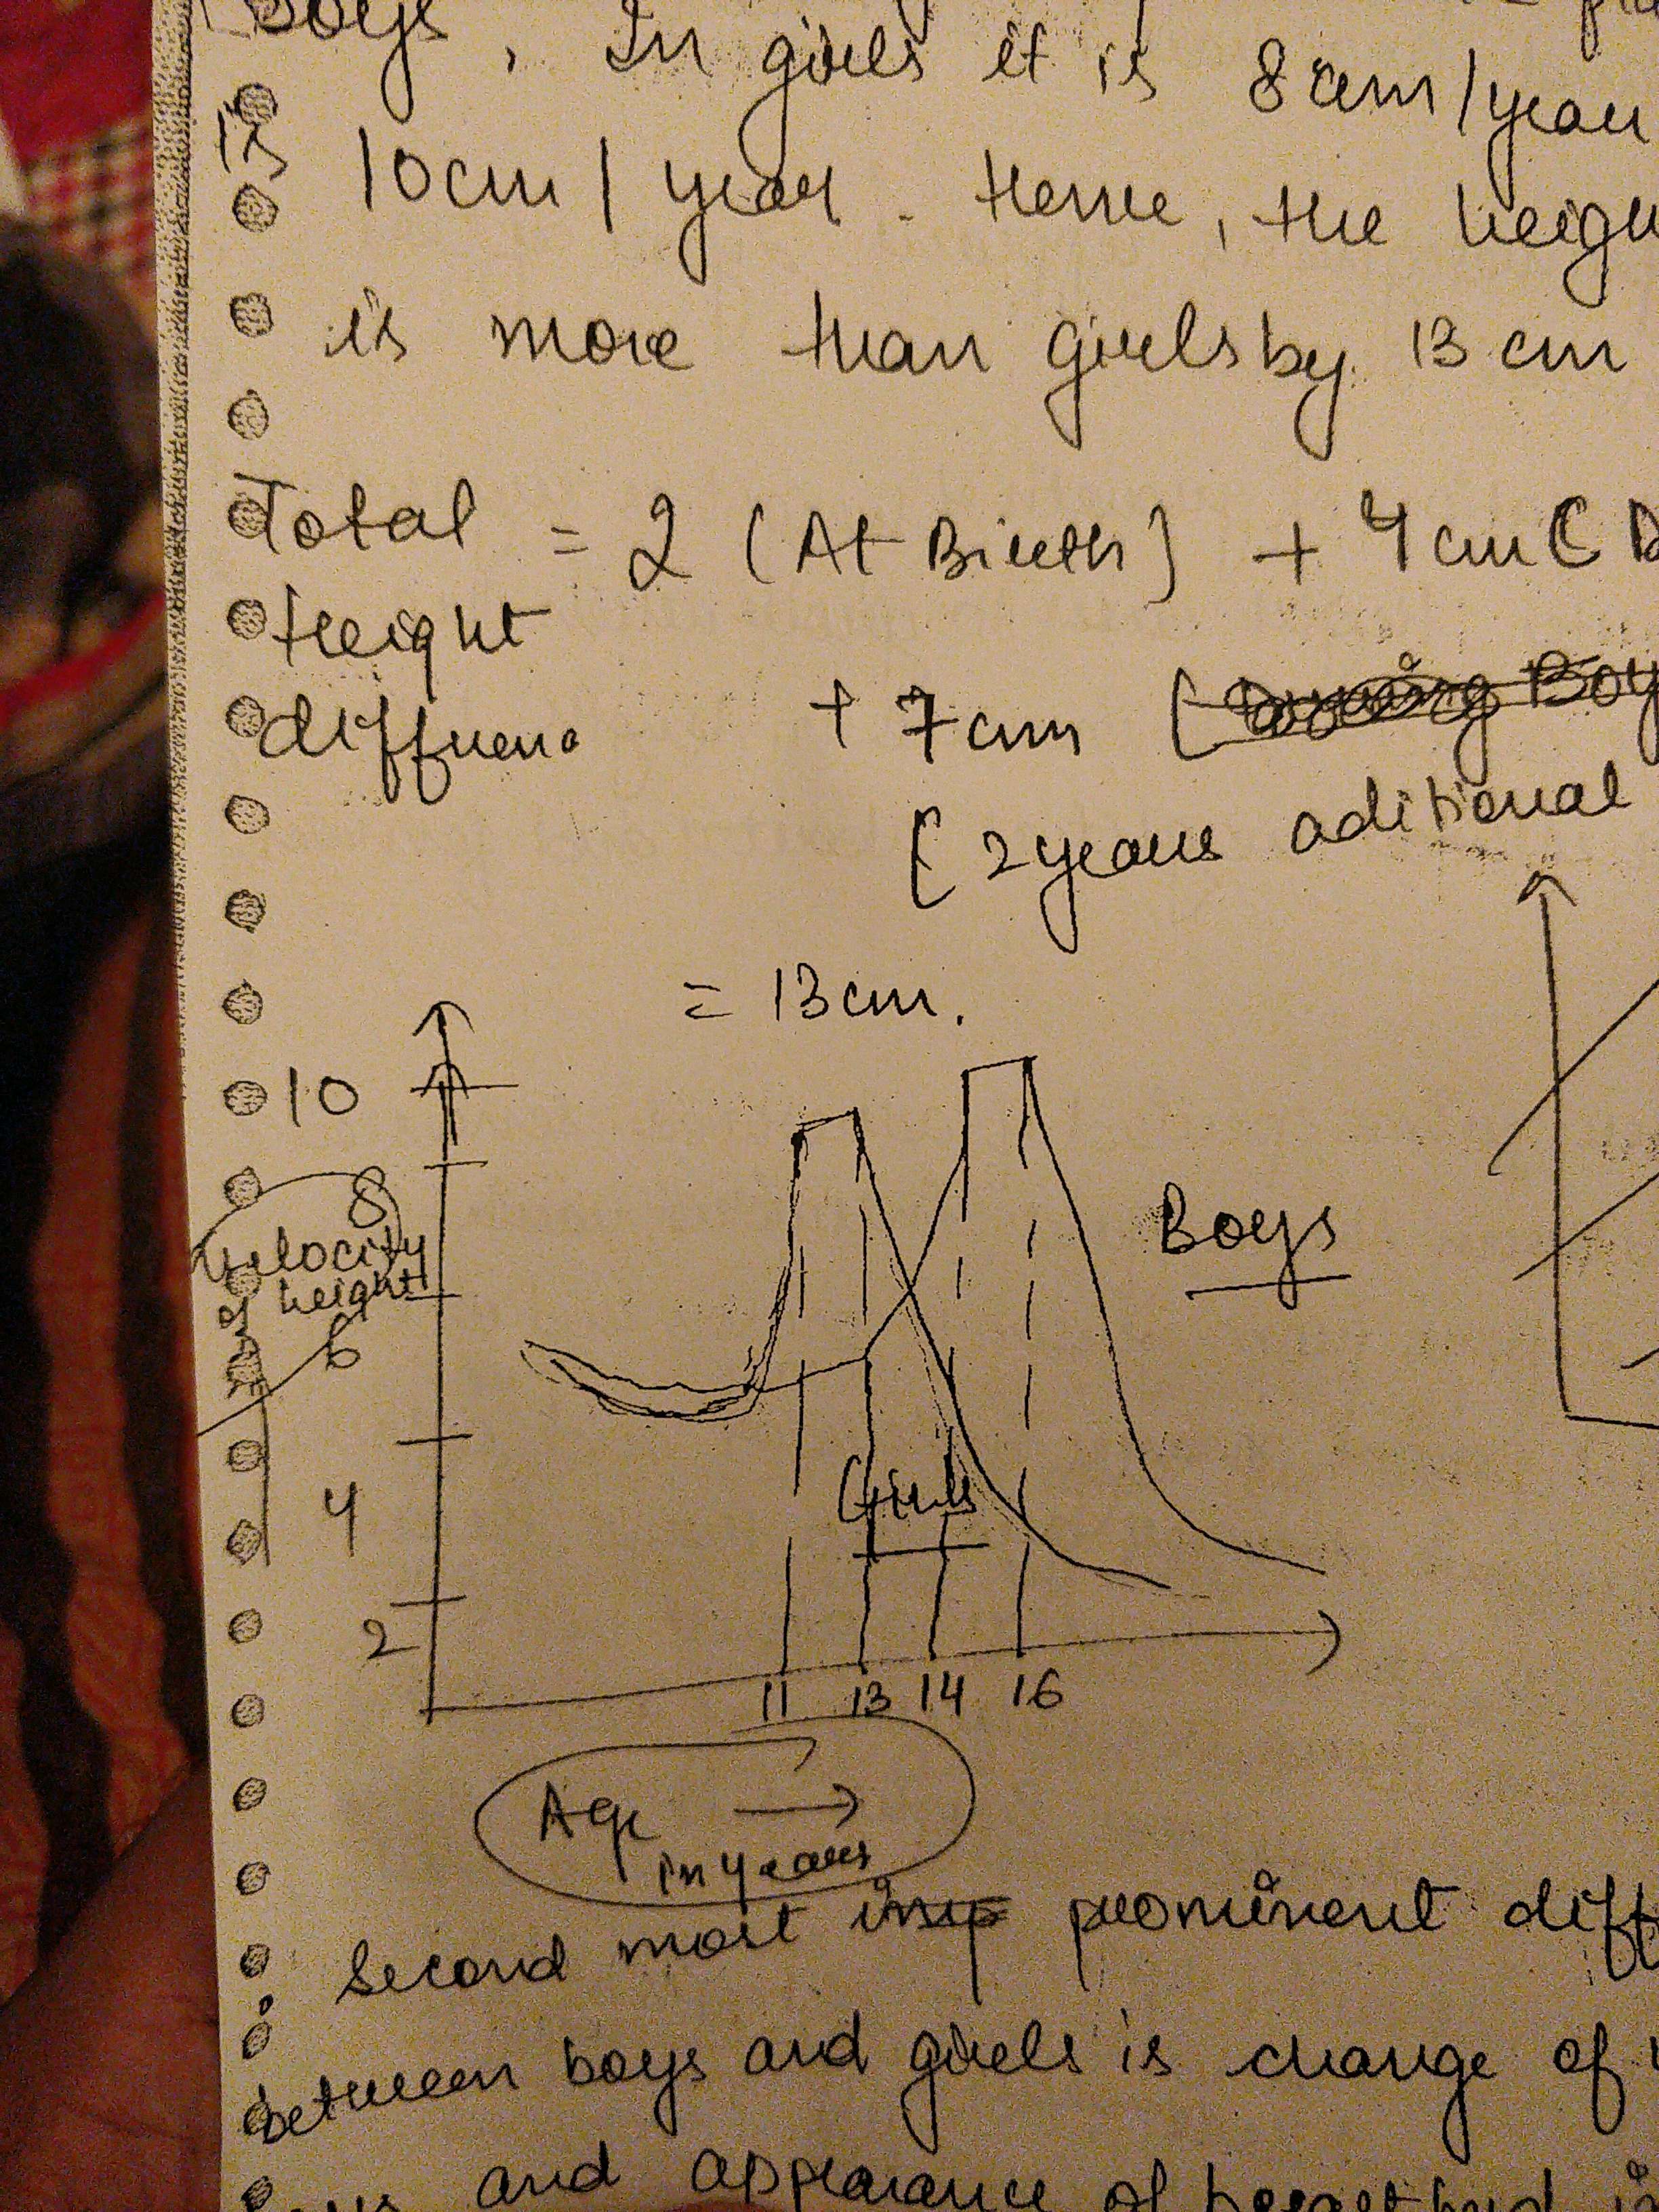 Boys, In girls it is 8cm/year
is 10cm/year. Hence, the heigh
is more than girls by 13 cm
Total = 2 (At Birth) + 4cm (D
Height
differenc + 7cm (During Boy
(2 years aditional
= 13cm.
10
8
velocity
of height
6
4
2
Boys
Girls
11 13 14 16
Age →
in years
Second most imp prominent diff
between boys and girls is change of
and appearance of breast bud